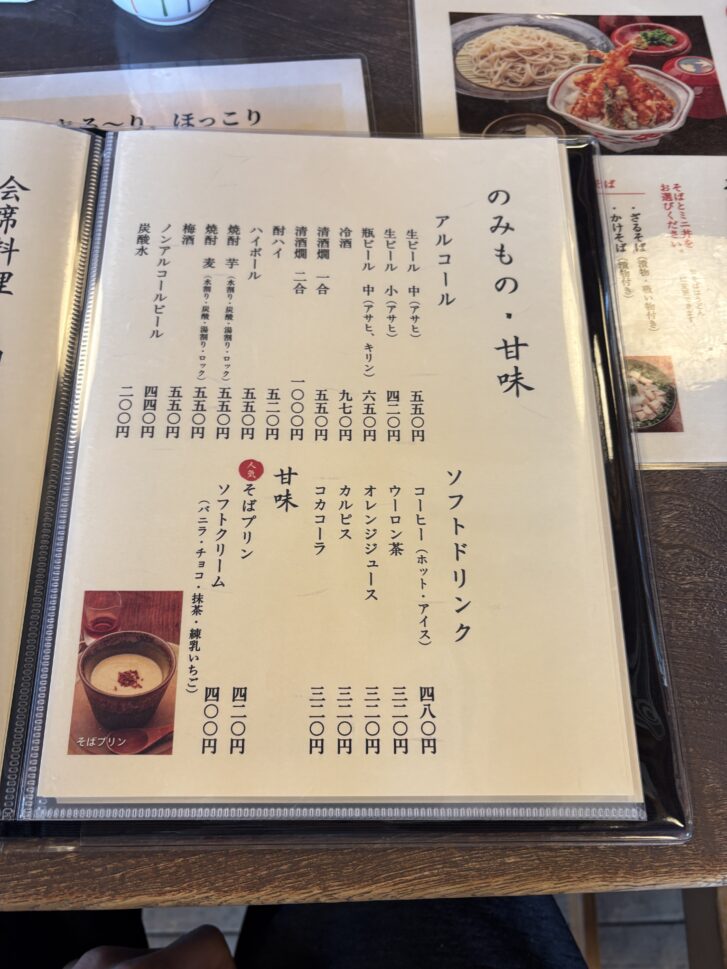 のみもの・甘味
アルコール
生ビール 中（アサヒ） 五五〇円
生ビール 小（アサヒ） 四二〇円
瓶ビール 中（アサヒ、キリン） 六五〇円
冷酒 九七〇円
清酒燗 一合 五五〇円
清酒燗 二合 一〇〇〇円
酎ハイ 五二〇円
ハイボール 五五〇円
焼酎 芋（水割り・炭酸・湯割り・ロック） 五五〇円
焼酎 麦（水割り・炭酸・湯割り・ロック） 五五〇円
梅酒 五五〇円
ノンアルコールビール 四四〇円
炭酸水 二〇〇円
ソフトドリンク
コーヒー（ホット・アイス） 四八〇円
ウーロン茶 三二〇円
オレンジジュース 三二〇円
カルピス 三二〇円
コカコーラ 三二〇円
甘味
人気 そばプリン 四二〇円
ソフトクリーム 四〇〇円
（バニラ・チョコ・抹茶・練乳いちご）
そばプリン
会席料理
ほっこり
そば
そばとミニ丼を
お選びください。
・ざるそば（漬物・吸い物付き）
・かけそば（漬物付き）